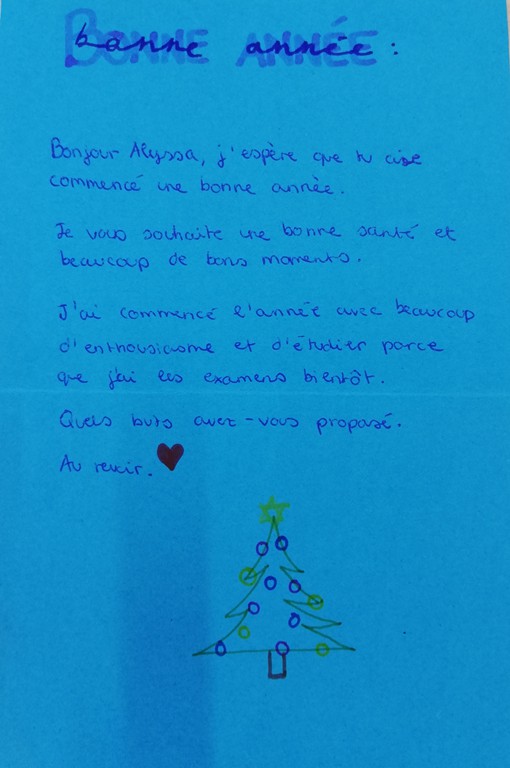 Bonne année :
Bonjour Alyssa, j'espère que tu aise
commencé une bonne année.
Je vous souhaite une bonne santé et
beaucoup de bons moments.
J'ai commencé l'année avec beaucoup
d'enthousiasme et d'étudier parce
que j'ai les examens bientôt.
Quels buts avez-vous proposé.
Au revoir.